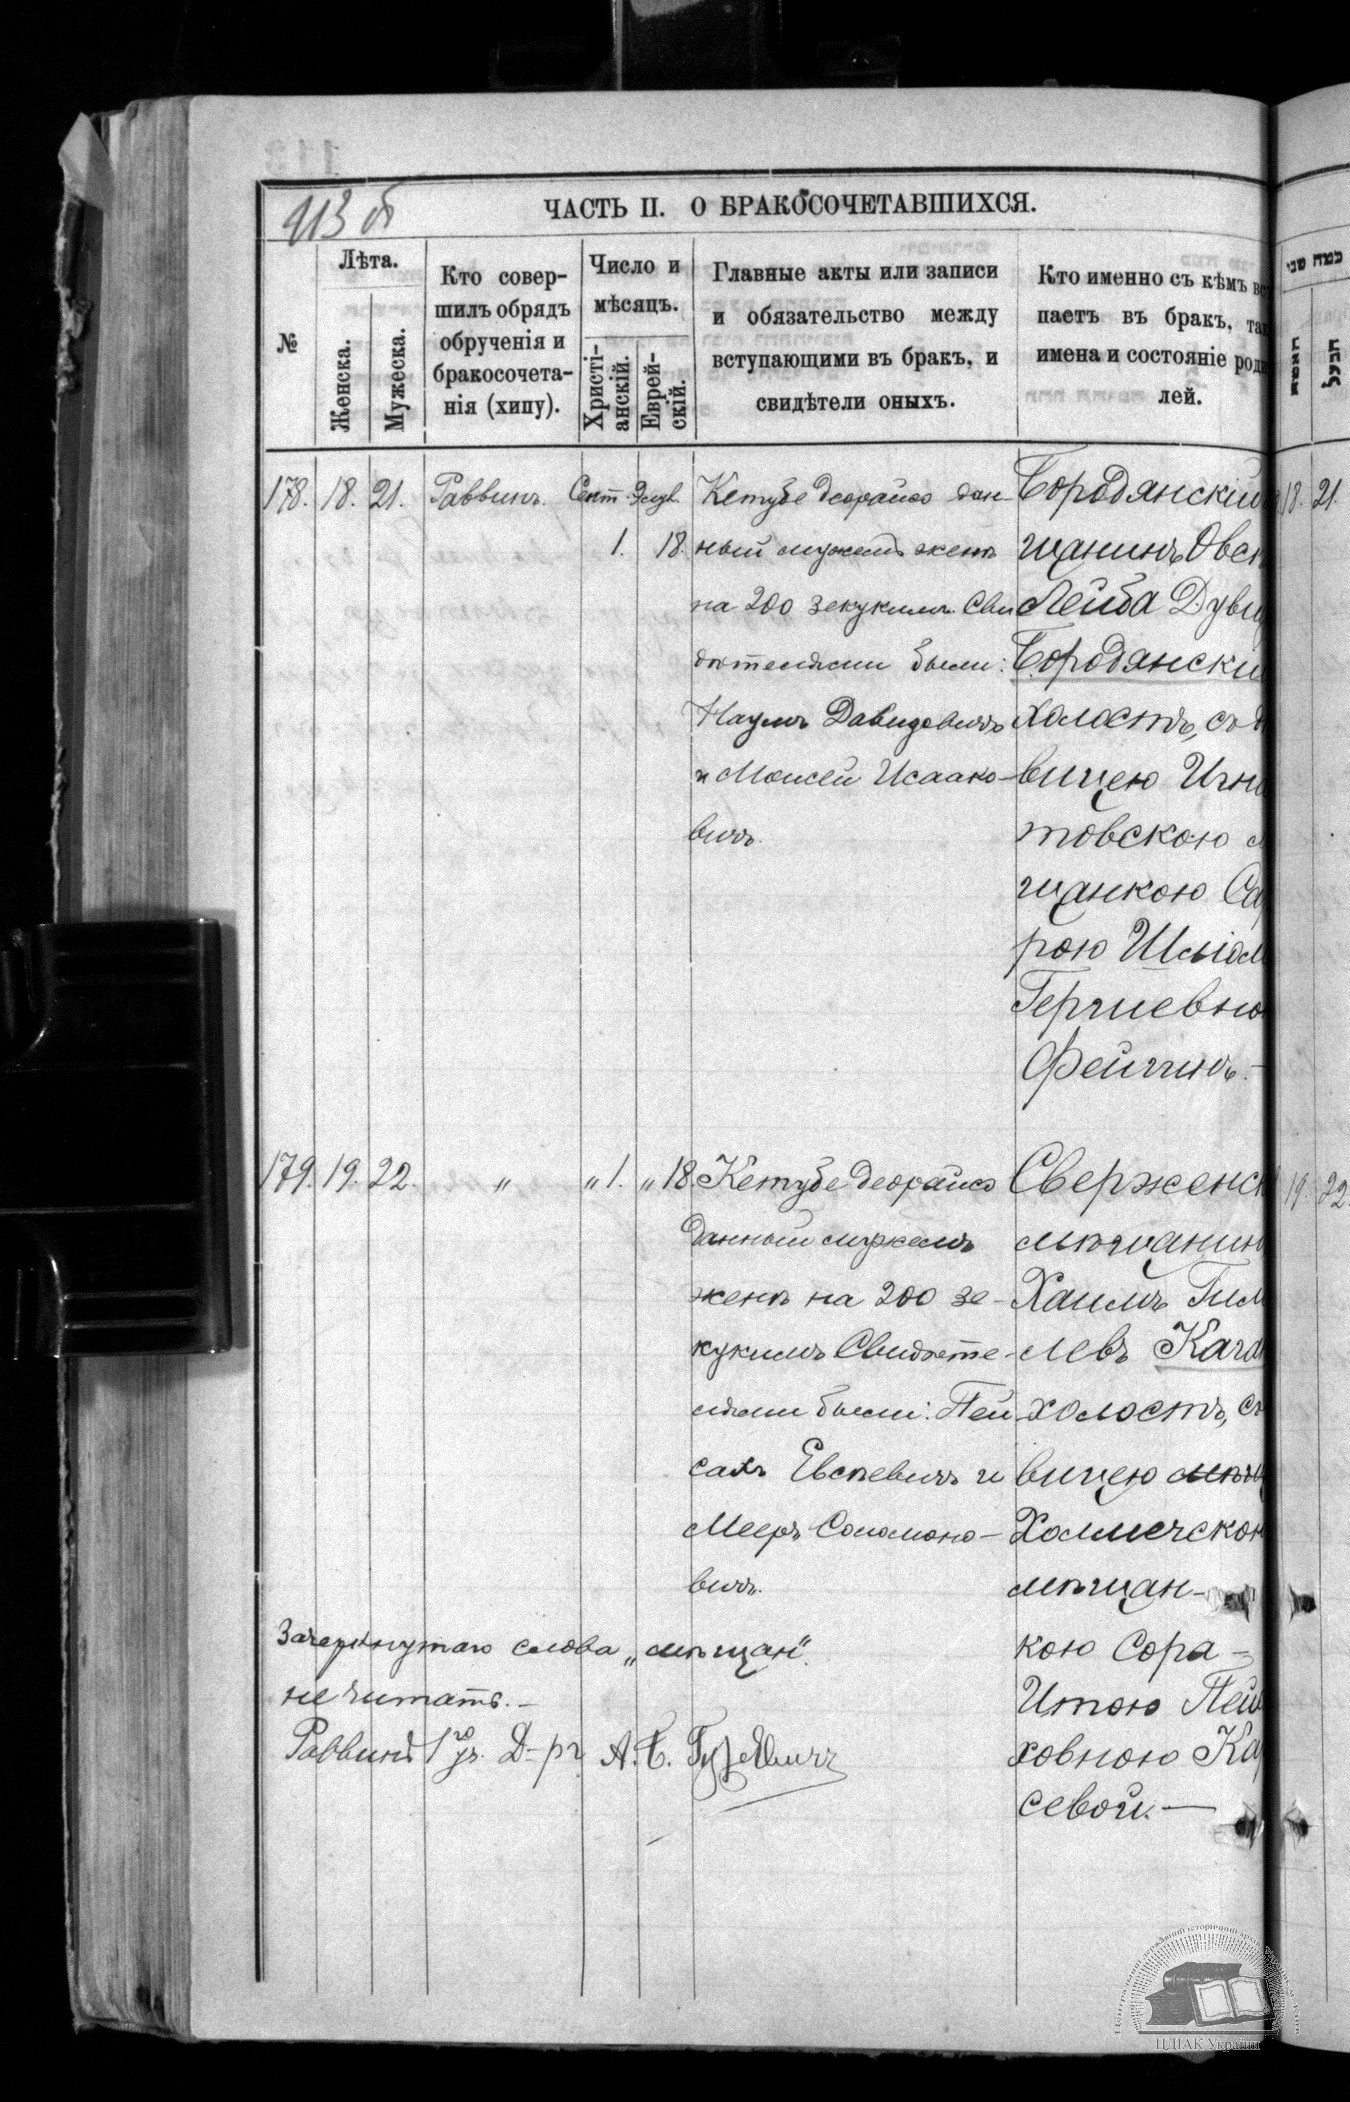 113 об
ЧАСТЬ II. О БРАКОСОЧЕТАВШИХСЯ.
№
Лѣта.
Женска.
Мужеска.
Кто совер-
шилъ обрядъ
обрученія и
бракосочета-
нія (хипу).
Число и
мѣсяцъ.
Христі-
анскій.
Еврей-
скій.
Главные акты или записи
и обязательство между
вступающими въ бракъ, и
свидѣтели оныхъ.
Кто именно съ кѣмъ вс
паетъ въ бракъ, та
имена и состояніе роди
лей.
178. 18. 21. Раввинъ. Сент. 1. Элул. 18.
Кетубе деорайсо дан-
ный мужемъ женѣ
на 200 зекукимъ. Сви
дѣтелями были:
Наумъ Давидовичъ
и Моисей Исаако-
вичъ.
Бородянскій
щанинъ Овсѣ
Лейба Дуви
Бородянскій
холостъ, съ д
вицею Игна
товскою м
щанкою Са
рою Шліом
Гершевно
Фейгинъ.-
18. 21.
179. 19. 22. „ „ 1. „ 18.
Кетубе деорайсо
данный мужемъ
женѣ на 200 зе-
кукимъ Свидѣте-
лями были: Пей
сахъ Евсѣевичъ и
Мееръ Соломоно-
вичъ.
Сверженск
мѣщанинъ
Хаимъ Гим
левъ Кага
холостъ, съ
вицею мѣщ
Холмечскою
мѣщан-
кою Сора-
Итою Пей
ховною Ка
севой.—
19. 22.
Зачеркнутаго слова „мѣщан“.
не читать.-
Раввинъ 1го уч. Д-ръ А. Б. Гуревичъ
ЦДІАК України